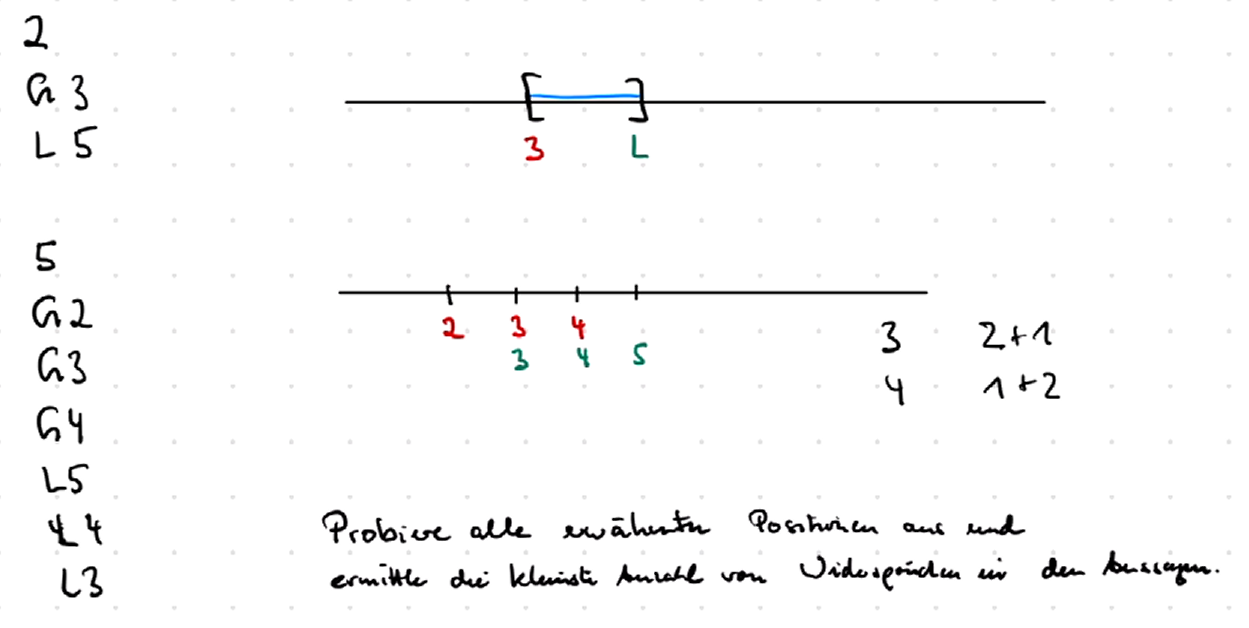 2
G 3
L 5
3 L
5
G2
G3
G4
L5
L 4
L3
2 3 4
3 4 5
3 2+1
4 1+2
Probiere alle erwähnten Positionen aus und
ermittle die kleinste Anzahl von Widersprüchen in den Aussagen.